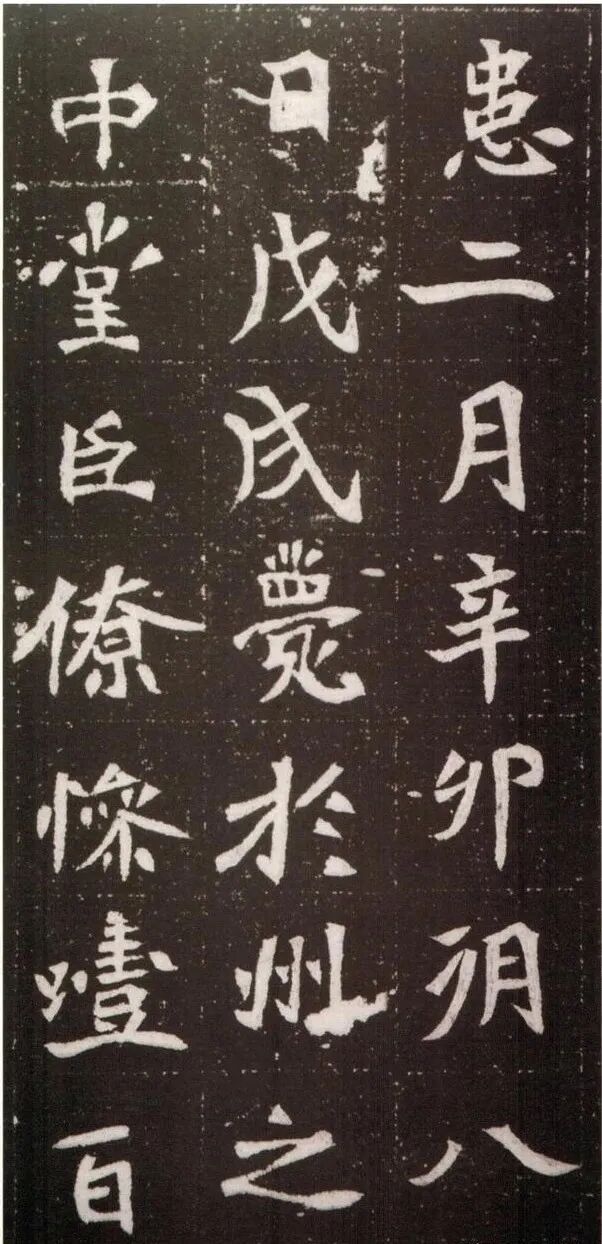 患二月辛卯朔八
日戊戌薨於州之
中堂臣僚慘噎百